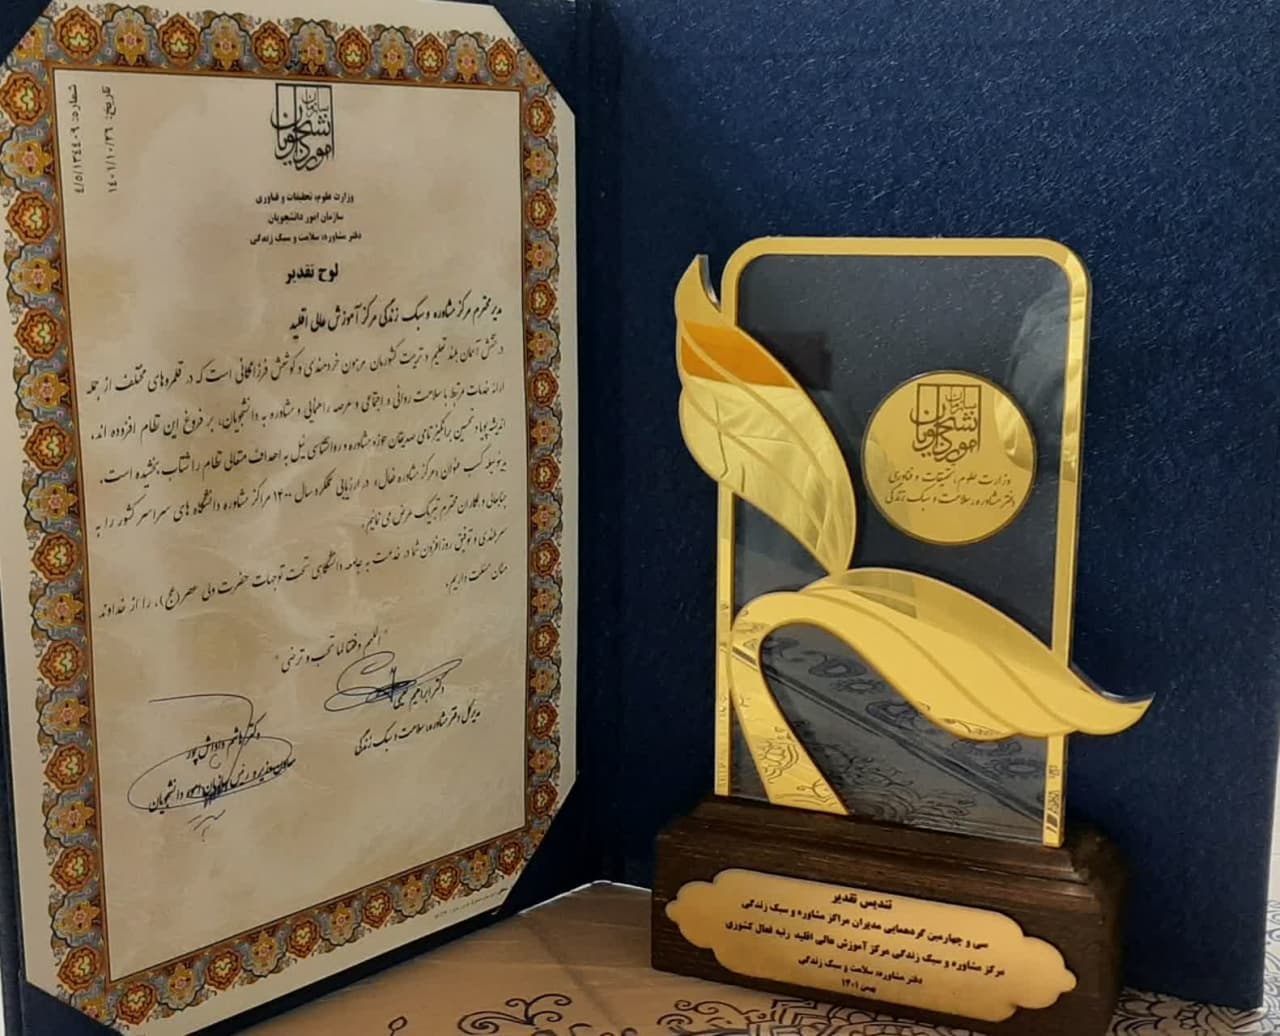 شماره: ۴/۵/۱۳۴۴۰۹
تاریخ: ۱۴۰۱/۱۰/۲۶
سازمان امور دانشجویان
وزارت علوم، تحقیقات و فناوری
سازمان امور دانشجویان
دفتر مشاوره، سلامت و سبک زندگی
لوح تقدیر
مدیر محترم مرکز مشاوره و سبک زندگی مرکز آموزش عالی اقلید
درخشش آسمان بلند تعلیم و تربیت کشورمان مرهون خردمندی و کوشش فرزانگانی است که در قلمروهای مختلف از جمله
ارائه خدمات مرتبط با سلامت روانی و اجتماعی و عرصه راهنمایی و مشاوره به دانشجویان، بر فروغ این نظام افزوده اند.
اندیشه پویا و تحسین برانگیز تمامی صدیقان حوزه مشاوره و روانشناسی نیل به اهداف متعالی نظام را شتاب بخشیده است.
بدینوسیله کسب عنوان «مرکز مشاوره فعال» در ارزیابی عملکرد سال ۱۴۰۰ مراکز مشاوره دانشگاه های سراسر کشور را به
جنابعالی و همکاران محترم تبریک عرض می نمائیم.
سربلندی و توفیق روزافزون شما در خدمت به جامعه دانشگاهی تحت توجهات حضرت ولی عصر (عج)، را از خداوند
منان مسئلت داریم.
" اللهم وفقنا لما تحب و ترضی "
دکتر ابراهیم
مدیرکل دفتر مشاوره، سلامت و سبک زندگی
دکتر هاشم داداش پور
معاون وزیر و رئیس سازمان امور دانشجویان
سازمان امور دانشجویان
وزارت علوم، تحقیقات و فناوری
دفتر مشاوره، سلامت و سبک زندگی
تندیس تقدیر
سی و چهارمین گردهمایی مدیران مراکز مشاوره و سبک زندگی
مرکز مشاوره و سبک زندگی مرکز آموزش عالی اقلید رتبه فعال کشوری
دفتر مشاوره، سلامت و سبک زندگی
بهمن ۱۴۰۱